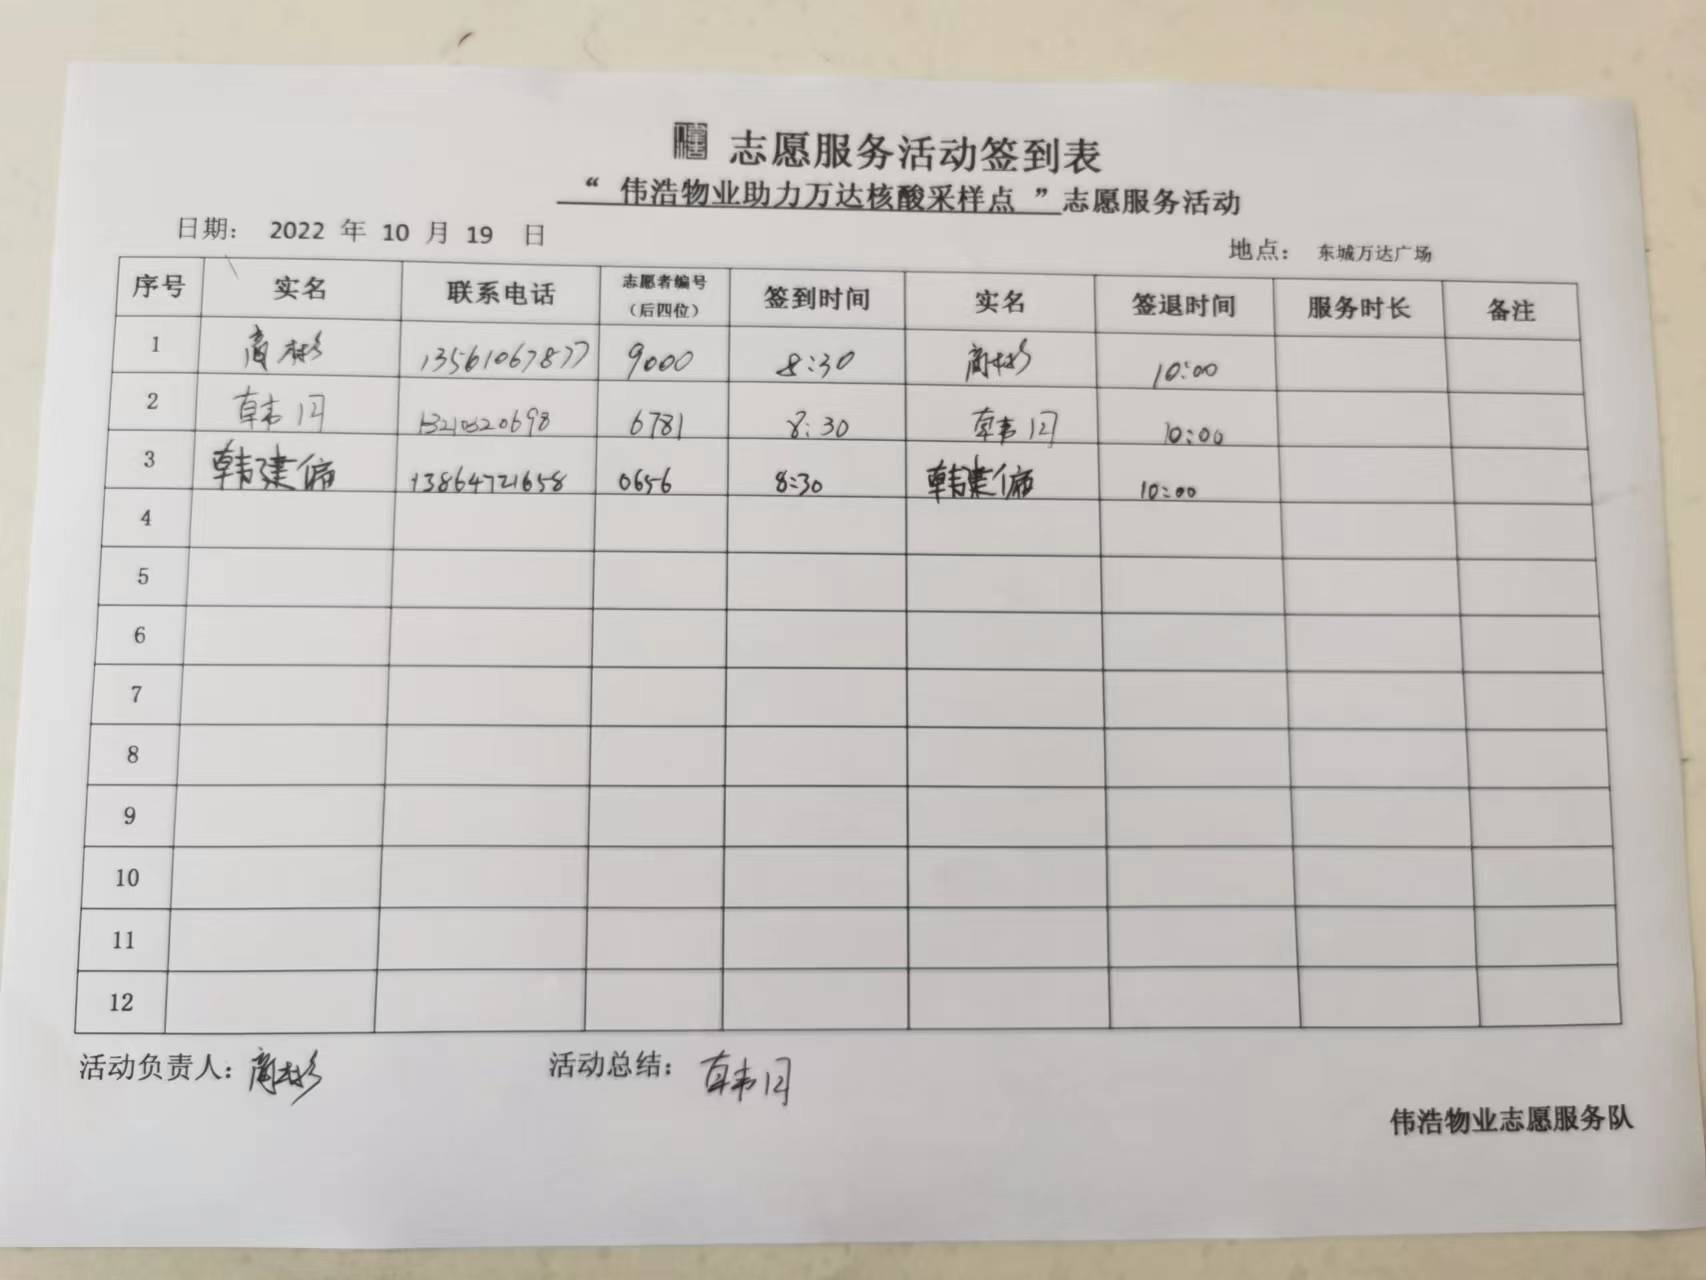 志愿服务活动签到表
“ 伟浩物业助力万达核酸采样点 ”志愿服务活动
日期： 2022 年 10 月 19 日
地点： 东城万达广场
序号 实名 联系电话 志愿者编号（后四位） 签到时间 实名 签退时间 服务时长 备注
1 商彬 13561067877 9000 8:30 商彬 10:00
2 韩闩 13210320698 6781 8:30 韩闩 10:00
3 韩建 13864721658 0656 8:30 韩建 10:00
4
5
6
7
8
9
10
11
12
活动负责人：商彬 活动总结：韩闩
伟浩物业志愿服务队